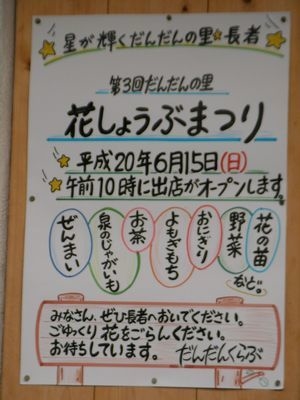 星が輝くだんだんの里★長者
第3回だんだんの里
花しょうぶまつり
平成20年6月15日(日)
午前10時に出店がオープンします。
花の苗
野菜
など。
おにぎり
よもぎもち
お茶
泉のじゃがいも
ぜんまい
みなさん、ぜひ長者へおいでください。
ごゆっくり花をごらんください。
お待ちしています。 だんだんくらぶ